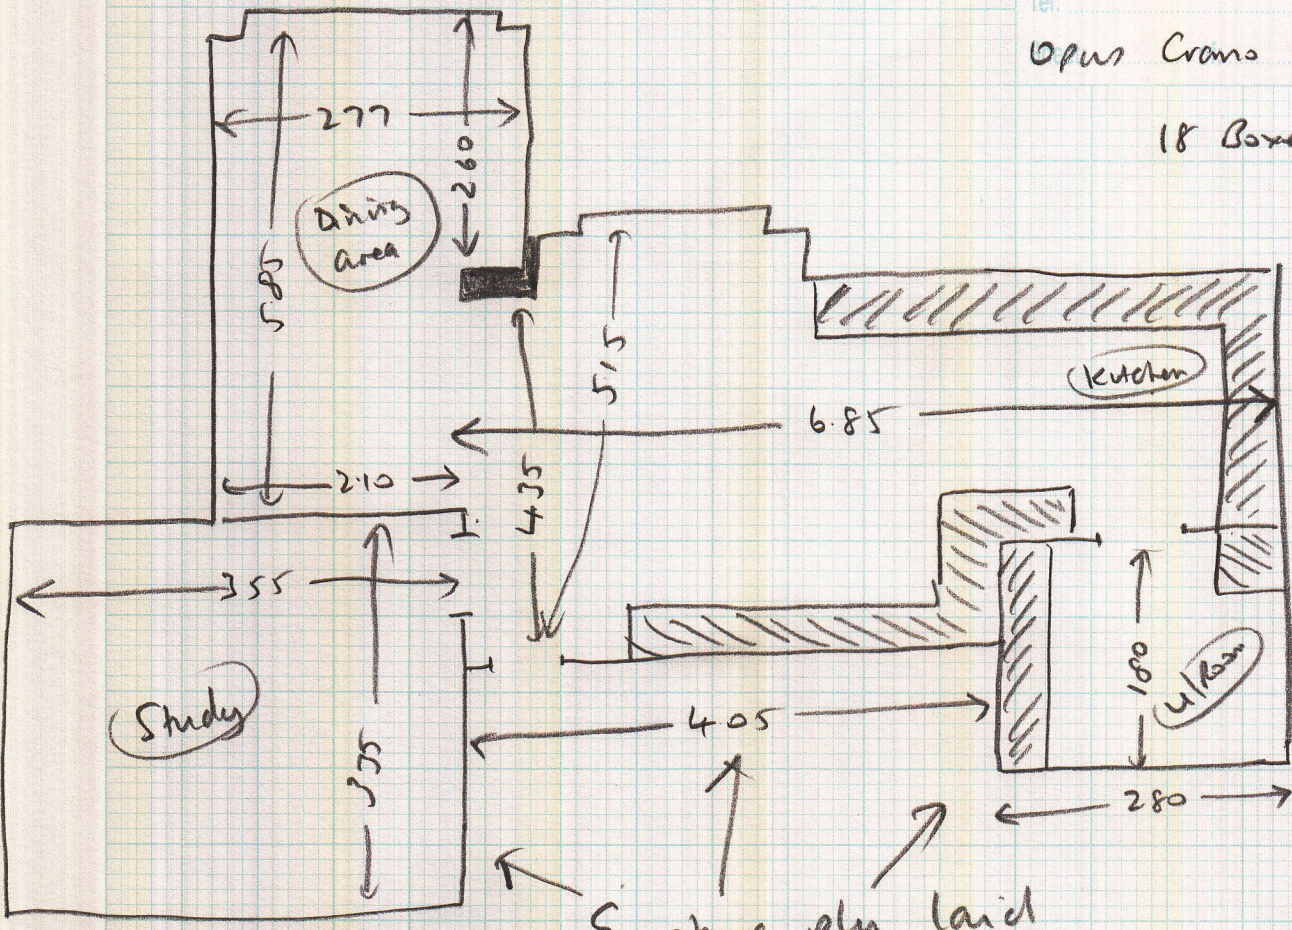 Tel.
Opus Cramo
18 Boxe
277
260
Dining
area
585
515
Kitchen
6.85
2.10
435
355
Study
335
180
U/Room
405
280
ply laid